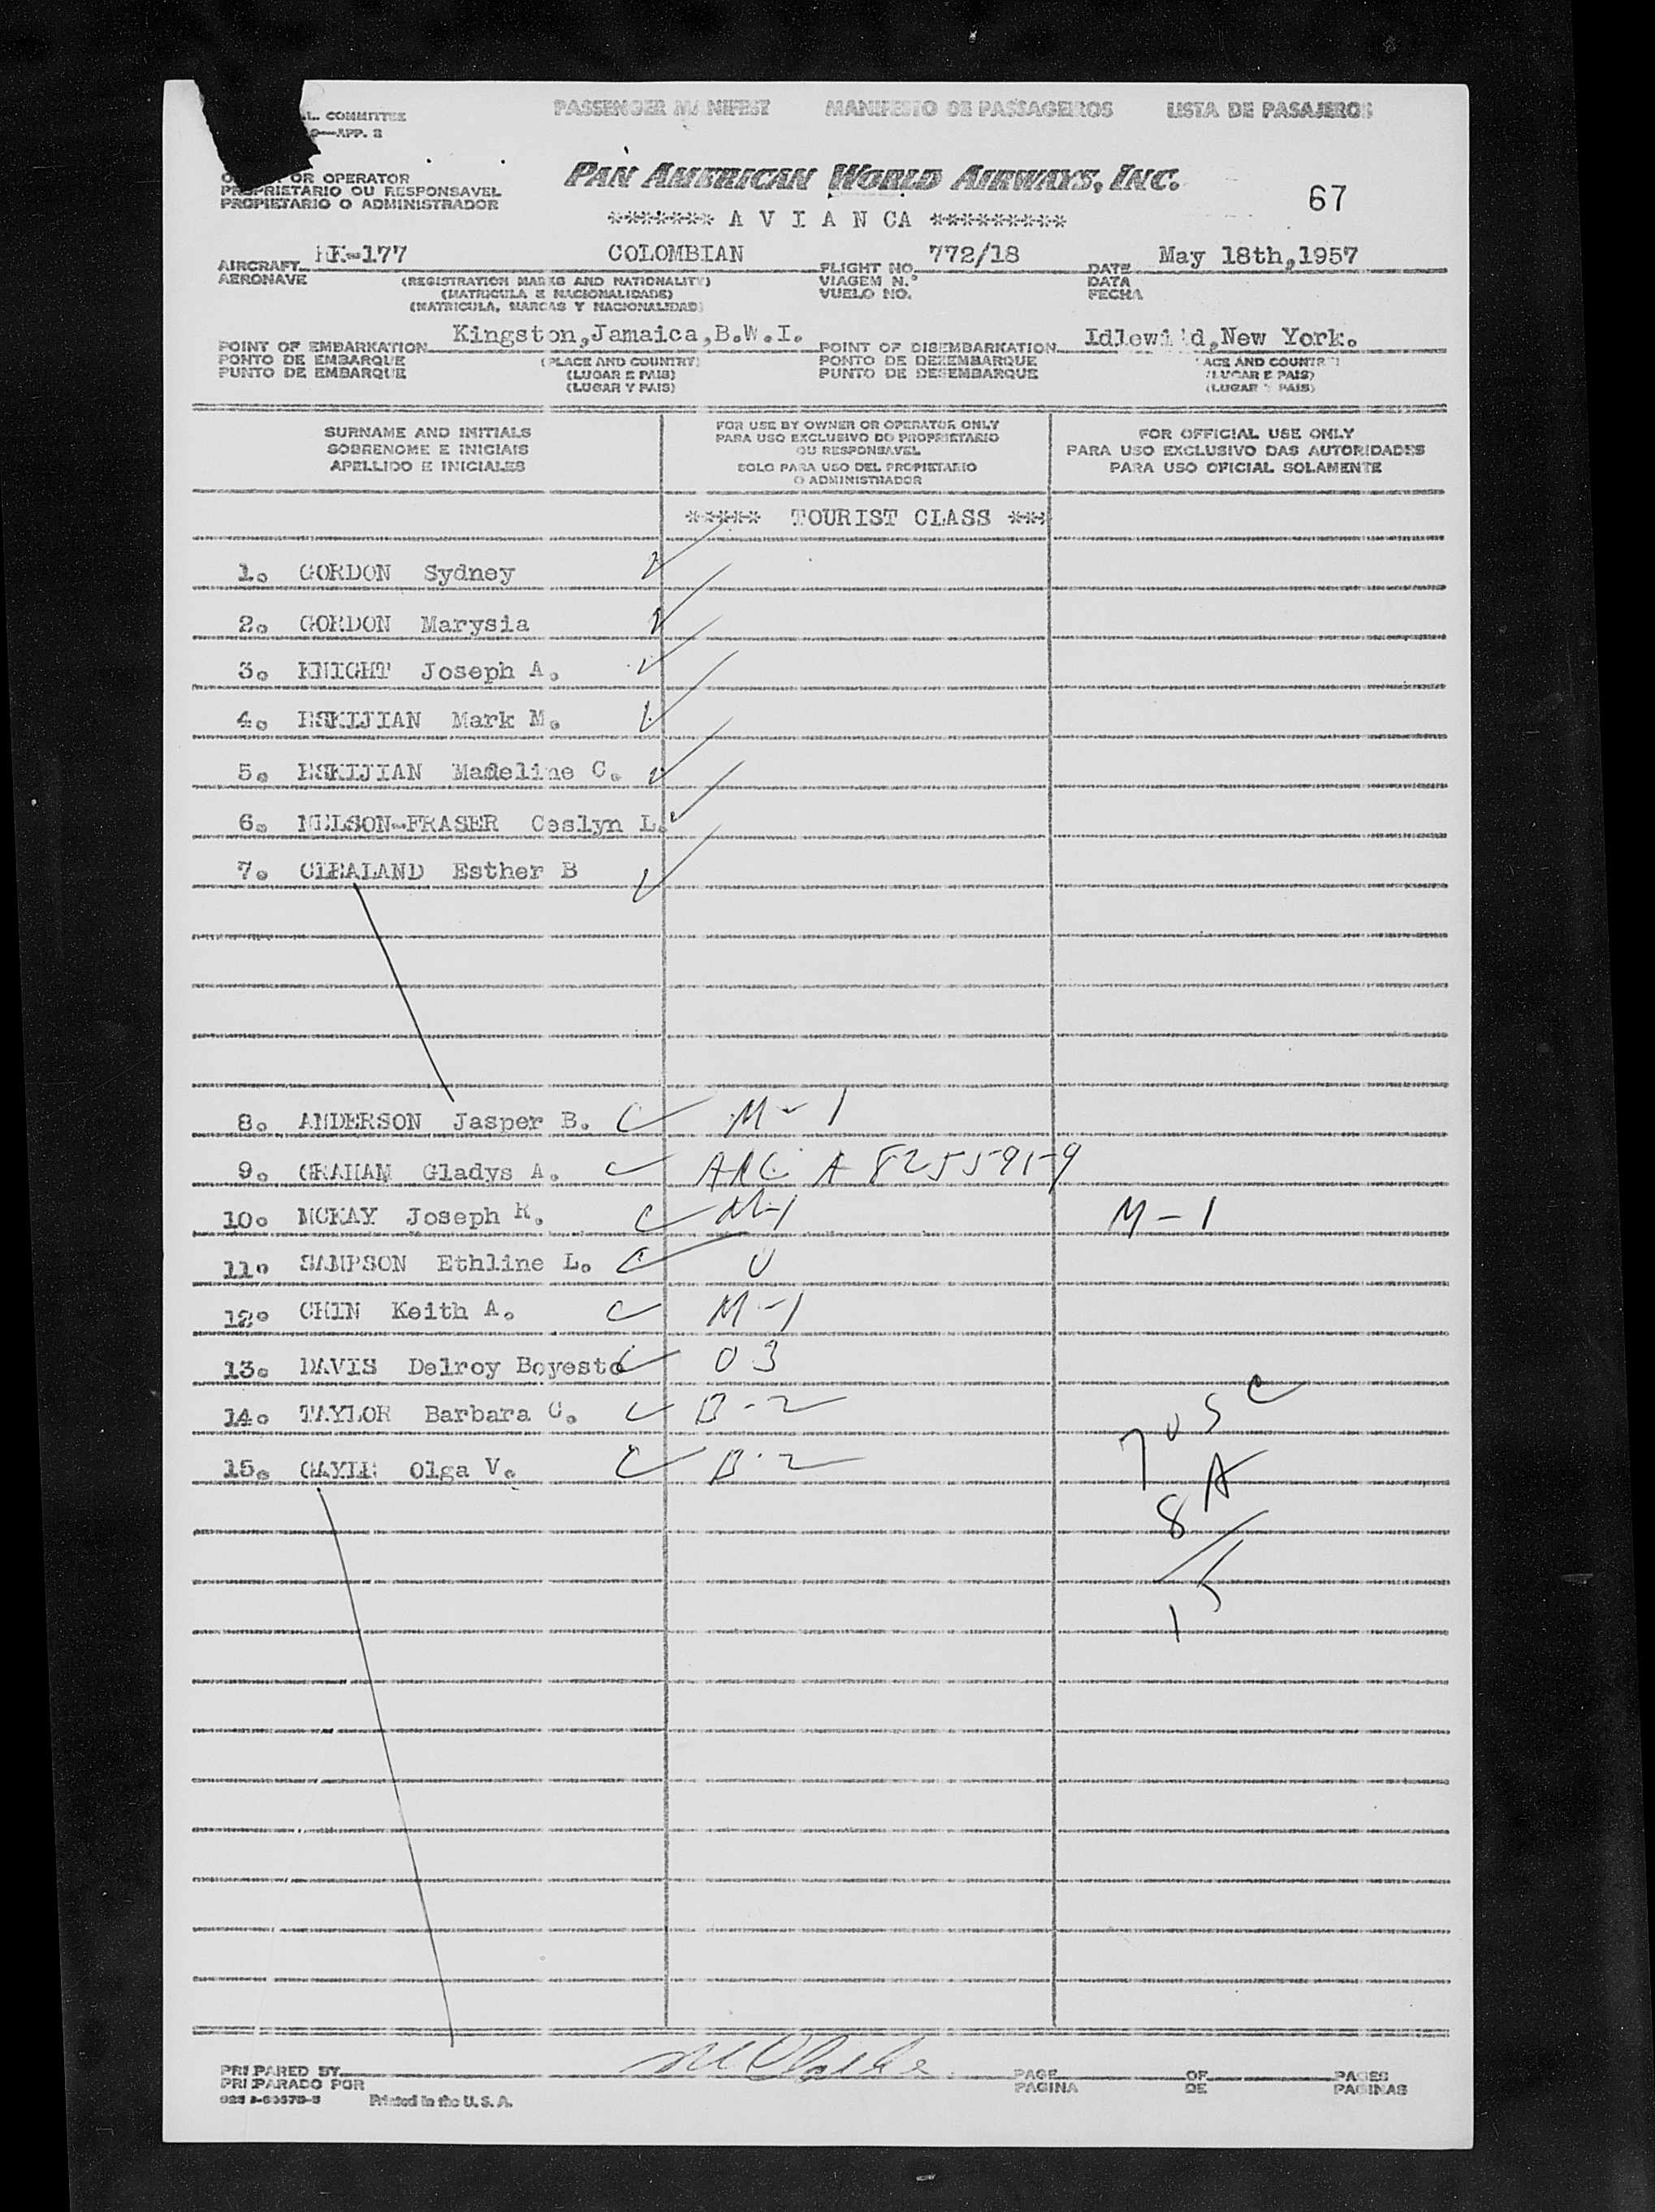 L. COMMITTEE
APP. 2
PASSENGER MANIFEST MANIFESTO DE PASSAGEIROS LISTA DE PASAJEROS
OR OPERATOR
PROPRIETARIO OU RESPONSAVEL
PROPIETARIO O ADMINISTRADOR
PAN AMERICAN WORLD AIRWAYS, INC.
67
******* A V I A N CA *********
AIRCRAFT HK-177 COLOMBIAN FLIGHT NO. 772/18 DATE May 18th,1957
AERONAVE (REGISTRATION MARKS AND NATIONALITY) VIAGEM N.° DATA
(MATRICULA E NACIONALIDADE) VUELO NO. FECHA
(MATRICULA, MARCAS Y NACIONALIDAD)
POINT OF EMBARKATION Kingston,Jamaica,B.W.I. POINT OF DISEMBARKATION Idlewild,New York.
PONTO DE EMBARQUE (PLACE AND COUNTRY) PONTO DE DESEMBARQUE ACE AND COUNTRY)
PUNTO DE EMBARQUE (LUGAR E PAIS) PUNTO DE DESEMBARQUE (LUGAR E PAIS)
(LUGAR Y PAIS) (LUGAR Y PAIS)
SURNAME AND INITIALS
SOBRENOME E INICIAIS
APELLIDO E INICIALES
FOR USE BY OWNER OR OPERATOR ONLY
PARA USO EXCLUSIVO DO PROPRIETARIO
OU RESPONSAVEL
SOLO PARA USO DEL PROPIETARIO
O ADMINISTRADOR
FOR OFFICIAL USE ONLY
PARA USO EXCLUSIVO DAS AUTORIDADES
PARA USO OFICIAL SOLAMENTE
***** TOURIST CLASS ***
1. GORDON Sydney
2. GORDON Marysia
3. KNIGHT Joseph A.
4. ESKIJIAN Mark M.
5. ESKIJIAN Madeline C.
6. NELSON-FRASER Ceslyn L.
7. CLEALAND Esther B
8. ANDERSON Jasper B. M-1
9. GRAHAM Gladys A. ARC A 8255959
10. MCKAY Joseph R. M-1 M-1
11. SAMPSON Ethline L. U
12. CHIN Keith A. M-1
13. DAVIS Delroy Boyesto 03
14. TAYLOR Barbara C. B-2
15. GAYLE Olga V. B-2
7 USC
8 A
15
PREPARED BY PAGE OF PAGES
PREPARADO POR PAGINA DE PAGINAS
Printed in the U. S. A.